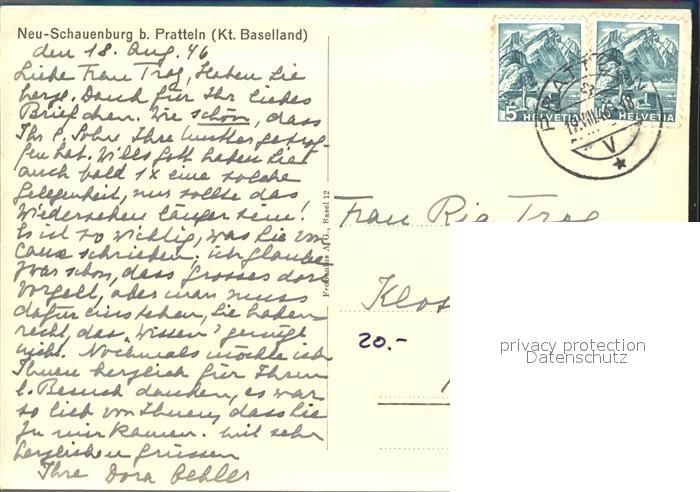 Neu-Schauenburg b. Pratteln (Kt. Baselland)
den 18. Aug. 46
Liebe Frau Trog, Haben Sie
herzl. Dank für Ihr liebes
Briefchen. Wie schön, dass
Ihr l. Sohn Ihre Mutter getrof-
fen hat. Will's Gott haben Sie
auch bald 1x eine solche
Gelegenheit, nur sollte das
Wiedersehen länger sein!
Es ist so wichtig, was Sie von
Caux schrieben, ich glaube
zwar schon, dass Grosses dort
vorgeht, aber man muss
dafür einstehen, Sie haben
recht, das "Wissen" genügt
nicht. Nochmals möchte ich
Ihnen herzlich für Ihren
l. Besuch danken, es war
so lieb von Ihnen, dass Sie
zu mir kamen. Mit sehr
herzlichen Grüssen
Ihre Dora
Frobenius A.G., Basel 12
5 HELVETIA
HELVETIA
PRATTELN
19.VIII.46-18
V
Frau Ria Trog
Klos
20.-
privacy protection
Datenschutz